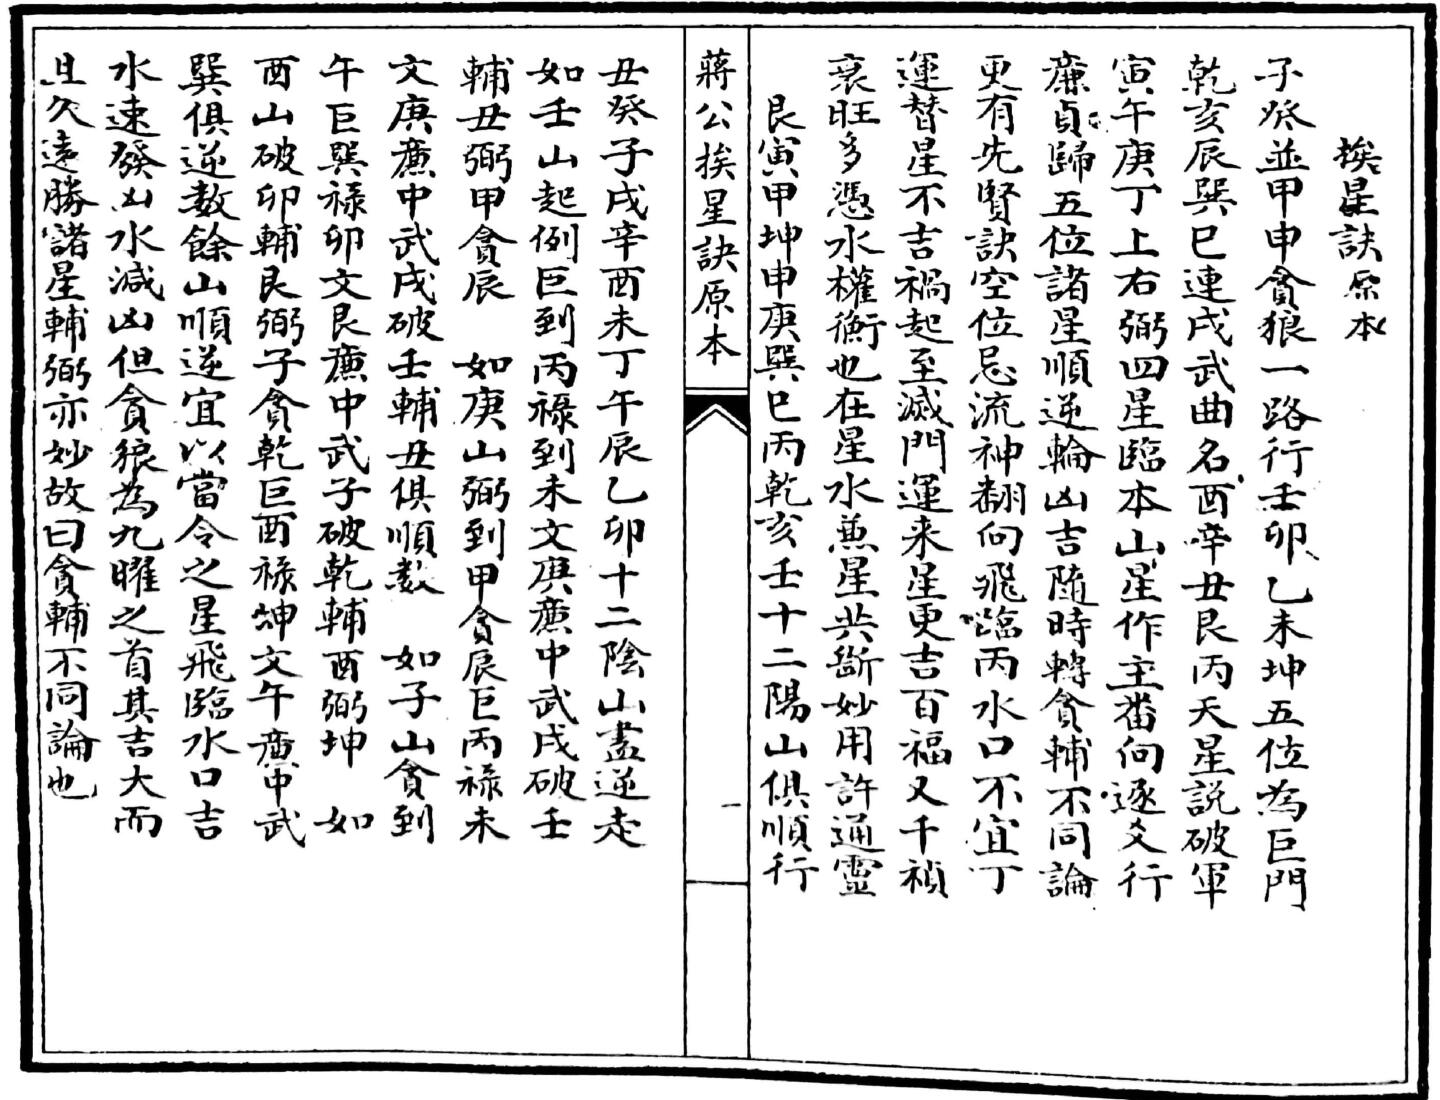 挨星訣原本
子癸並甲申貪狼一路行壬卯乙未坤五位為巨門
乾亥辰巽巳連戌武曲名酉辛丑艮丙天星説破軍
寅午庚丁上右弼四星臨本山星作主畨向逐爻行
廉貞歸五位諸星順逆輪凶吉隨時轉貪輔不同論
更有先賢訣空位忌流神翻向飛臨丙水口不宜丁
運替星不吉禍起至滅門運来星更吉百福又千禎
衰旺多憑水權衡也在星水兼星共斷妙用許通靈
艮寅甲坤申庚巽巳丙乾亥壬十二陽山俱順行
蔣公挨星訣原本
一
丑癸子戌辛酉未丁午辰乙卯十二陰山盡逆走
如壬山起例巨到丙禄到未文庚廉中武戌破壬
輔丑弼甲貪辰　如庚山弼到甲貪辰巨丙禄未
文庚廉中武戌破壬輔丑俱順數　如子山貪到
午巨巽禄卯文艮廉中武子破乾輔酉弼坤　如
酉山破卯輔艮弼子貪乾巨酉禄坤文午廉中武
巽俱逆數餘山順逆宜以當令之星飛臨水口吉
水速發凶水減凶但貪狼為九曜之首其吉大而
且久遠勝諸星輔弼亦妙故曰貪輔不同論也